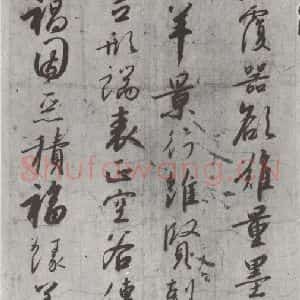 覆器欲難量墨
羊景行維賢剋
立形端表正空谷傳
禍因惡積福緣善
Shufawang.CN